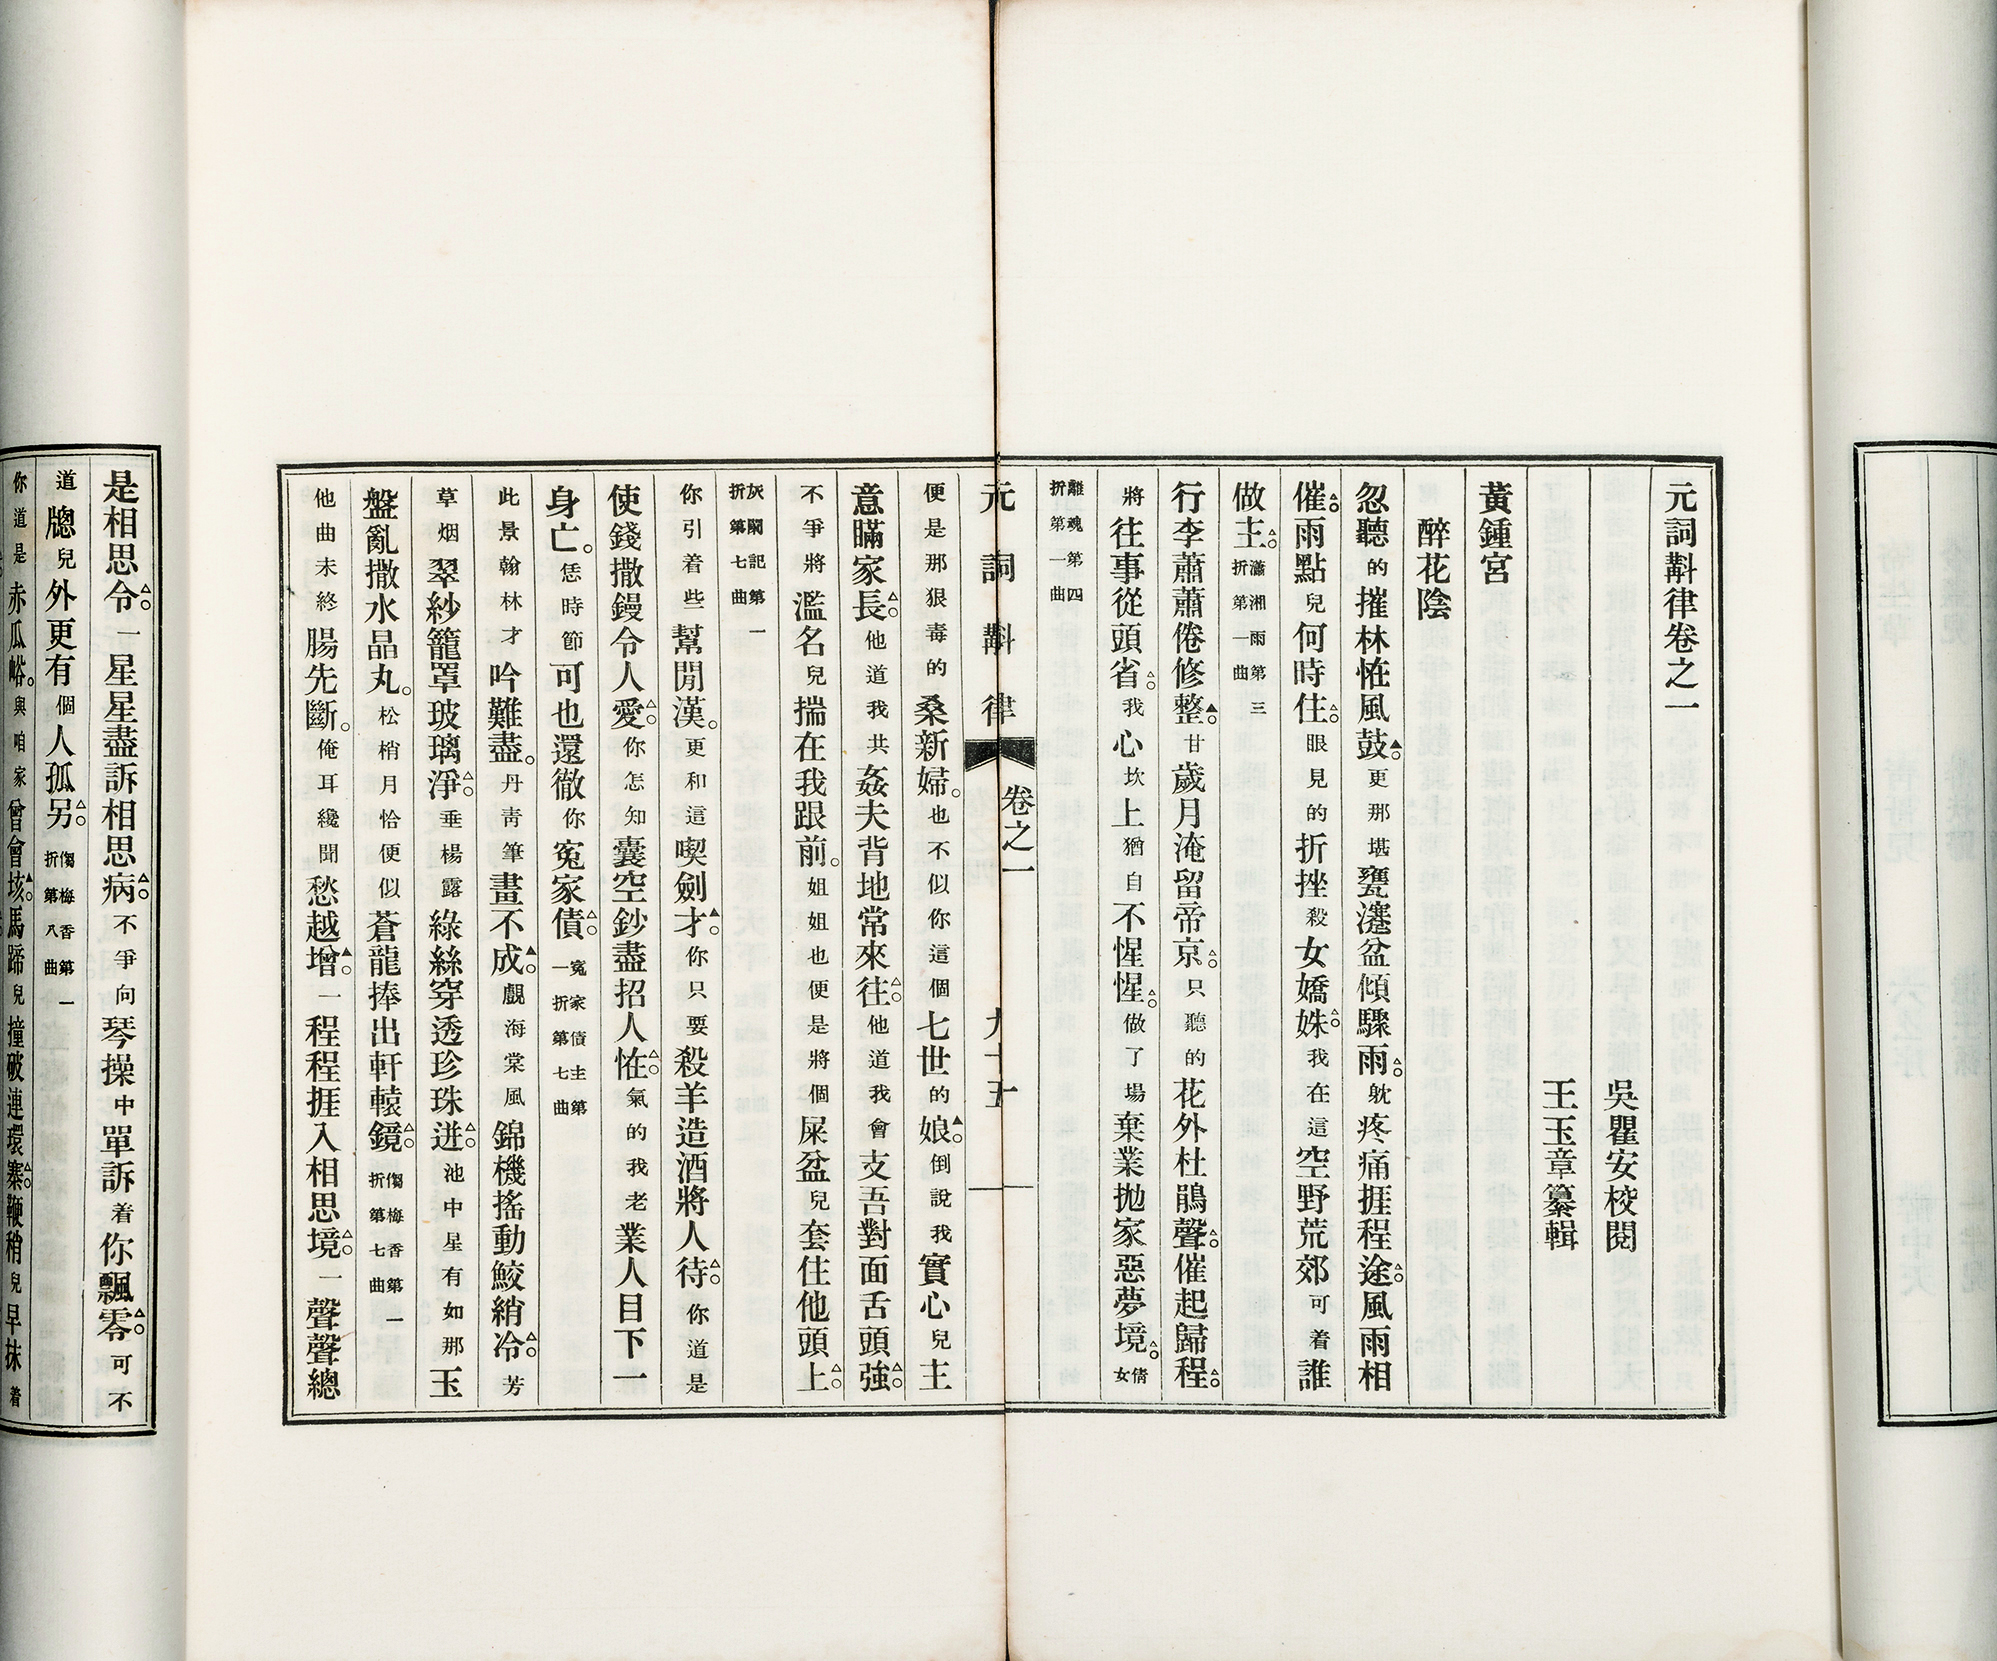 元詞斠律卷之一
吳瞿安校閱
王玉章纂輯
黃鍾宮
醉花陰
忽聽的摧林恠風鼓更那堪甕瀽盆傾驟雨躭疼痛捱程途風雨相
催雨點兒何時住眼見的折挫殺女嬌姝我在這空野荒郊可着誰
做主瀟湘雨第三折第一曲
行李蕭蕭倦修整甘歲月淹留帝京只聽的花外杜鵑聲催起歸程
將往事從頭省我心坎上猶自不惺惺做了場棄業拋家惡夢境倩女
離魂第四折第一曲
元詞斠律 卷之一 九十五
便是那狠毒的桑新婦也不似你這個七世的娘倒說我實心兒主
意瞞家長他道我共姦夫背地常來往他道我會支吾對面舌頭強
不爭將濫名兒揣在我跟前姐姐也便是將個屎盆兒套住他頭上
灰闌記第一折第七曲
你引着些幫閒漢更和這喫劍才你只要殺羊造酒將人待你道是
使錢撒鏝令人愛你怎知囊空鈔盡招人恠氣的我老業人目下一
身亡恁時節可也還徹你寃家債寃家債主第一折第七曲
此景翰林才吟難盡丹靑筆畫不成覷海棠風錦機搖動鮫綃冷芳
草烟翠紗籠罩玻璃淨垂楊露綠絲穿透珍珠迸池中星有如那玉
盤亂撒水晶丸松梢月恰便似蒼龍捧出軒轅鏡㑳梅香第一折第七曲
他曲未終腸先斷俺耳纔聞愁越增一程程捱入相思境一聲聲總
是相思令一星星盡訴相思病不爭向琴操中單訴着你飄零可不
道牕兒外更有個人孤另㑳梅香第一折第八曲
你道是赤瓜峪與咱家曾會垓馬蹄兒撞破連環寨鞭梢兒早抹着